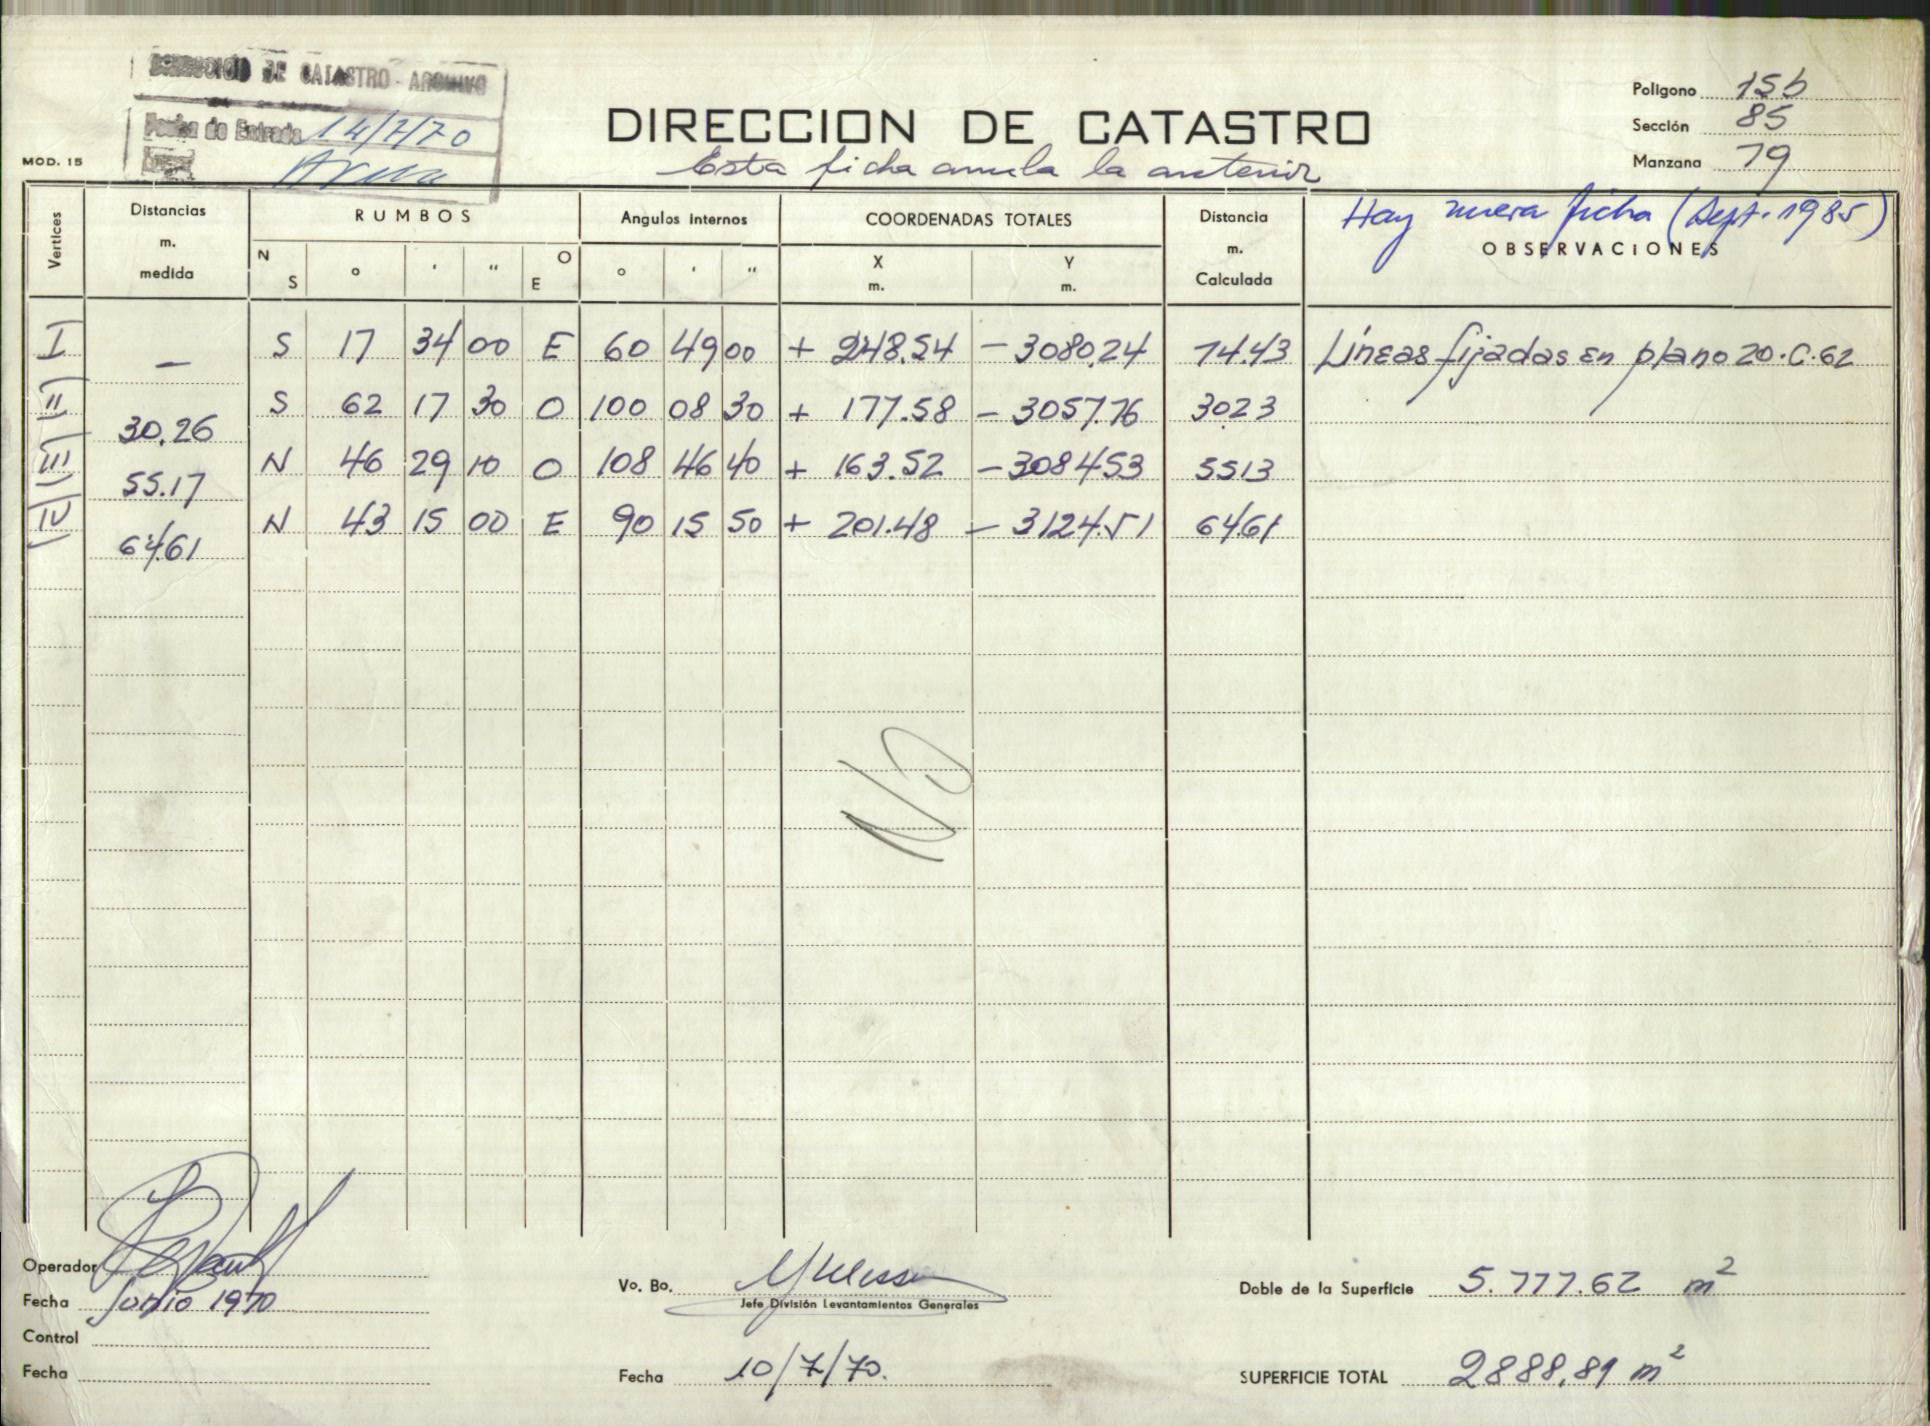 DIRECCION DE CATASTRO - ARCHIVO
Fecha de Entrada 14/7/70
MOD. 15
DIRECCION DE CATASTRO
Esta ficha anula la anterior
Poligono 15b
Sección 85
Manzana 79
Hay nueva ficha (Sept. 1985)
Vertices Distancias m. medida RUMBOS Angulos internos COORDENADAS TOTALES Distancia m. Calculada OBSERVACIONES
N S ° ' " O E ° ' " X m. Y m.
I — S 17 34 00 E 60 49 00 + 248.54 - 3080.24 74.43 Líneas fijadas en plano 20.C.62
II 30.26 S 62 17 30 O 100 08 30 + 177.58 - 3057.76 30.23
III 55.17 N 46 29 10 O 108 46 40 + 163.52 - 3084.53 55.13
IV 64.61 N 43 15 00 E 90 15 50 + 201.48 - 3124.51 64.61
NO
Operador
Fecha Junio 1970
Control
Fecha
Vo. Bo.
Jefe División Levantamientos Generales
Fecha 10/7/70.
Doble de la Superficie 5.777.62 m²
SUPERFICIE TOTAL 2888,81 m²